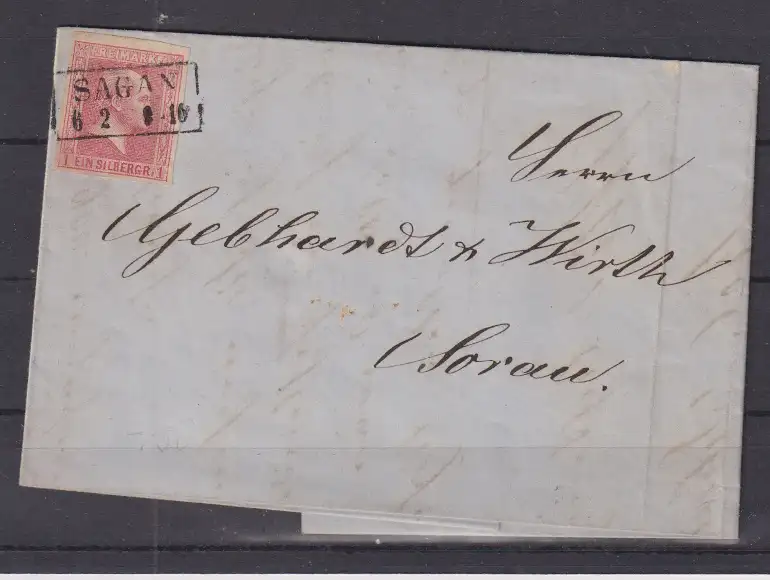 FREIMARKE
SAGAN
6 2 8-10
1 EIN SILBERGR. 1
Herrn
Gebhardt & Wirth
Sorau.